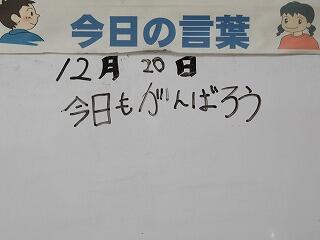 今日の言葉
12月 20日
今日もがんばろう